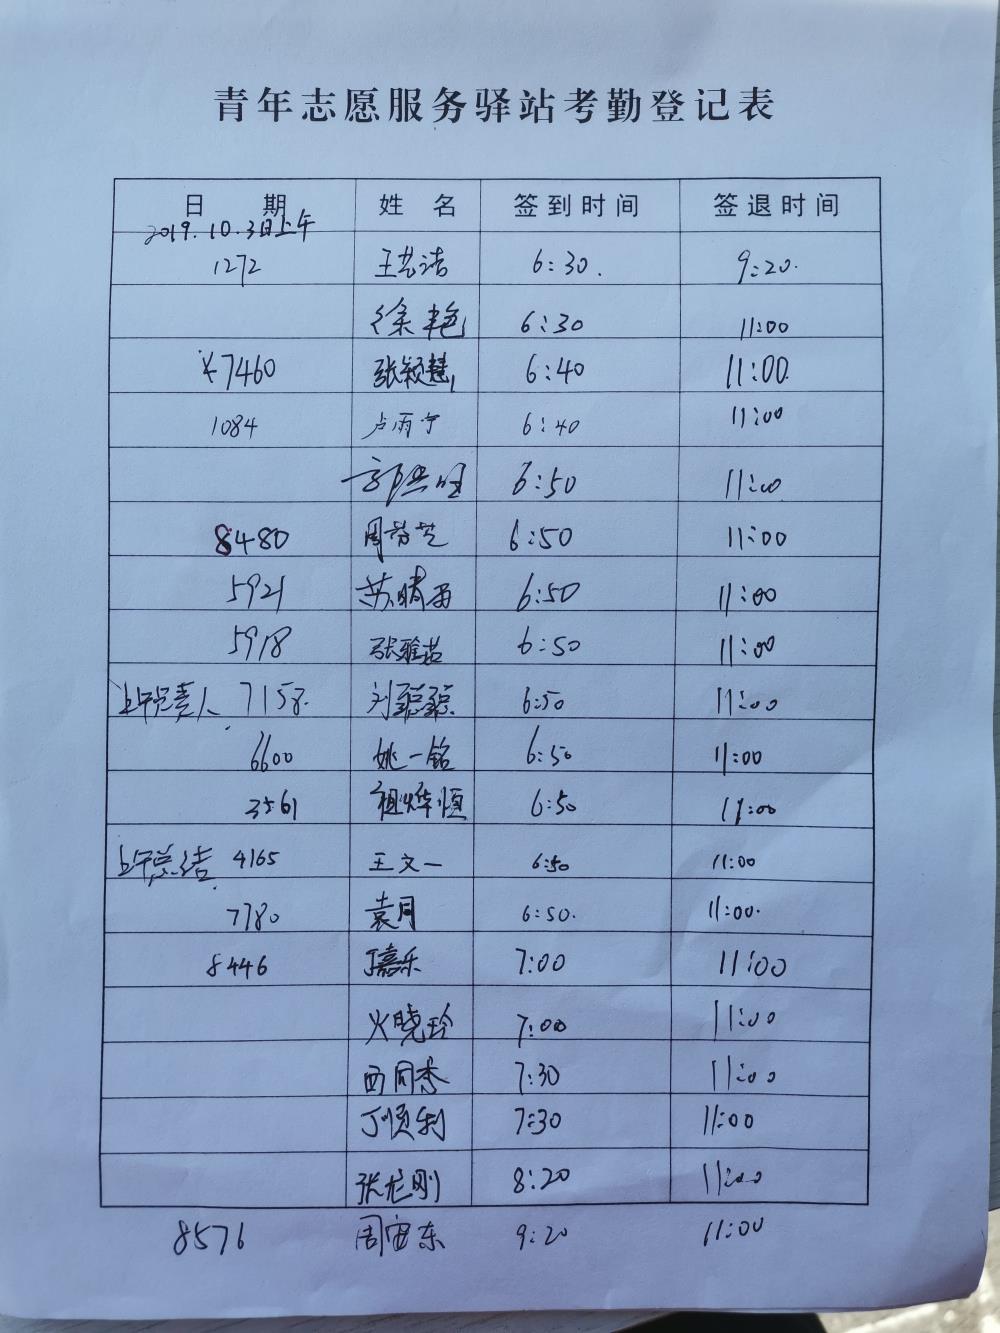 青年志愿服务驿站考勤登记表
日 期 姓 名 签到时间 签退时间
2019.10.3日上午
1272 王艺洁 6:30. 9:20.
徐丰艳 6:30 11:00
¥7460 张颖慧 6:40 11:00.
1084 卢雨宁 6:40 11:00
6:50 11:00
8480 周芬芝 6:50 11:00
5921 苏晴雨 6:50 11:00
5918 张雅茹 6:50 11:00
上午负责人 7158. 刘聪聪 6:50 11:00
6600 姚一铭 6:50 11:00
3561 祖烨恒 6:50 11:00
上午总结 4165 王文一 6:50 11:00
7780 袁月 6:50. 11:00.
8446 丁嘉乐 7:00 11:00
火晓玲 7:00 11:00
西同香 7:30 11:00
丁顺利 7:30 11:00
张龙刚 8:20 11:00
8576 周宙东 9:20 11:00